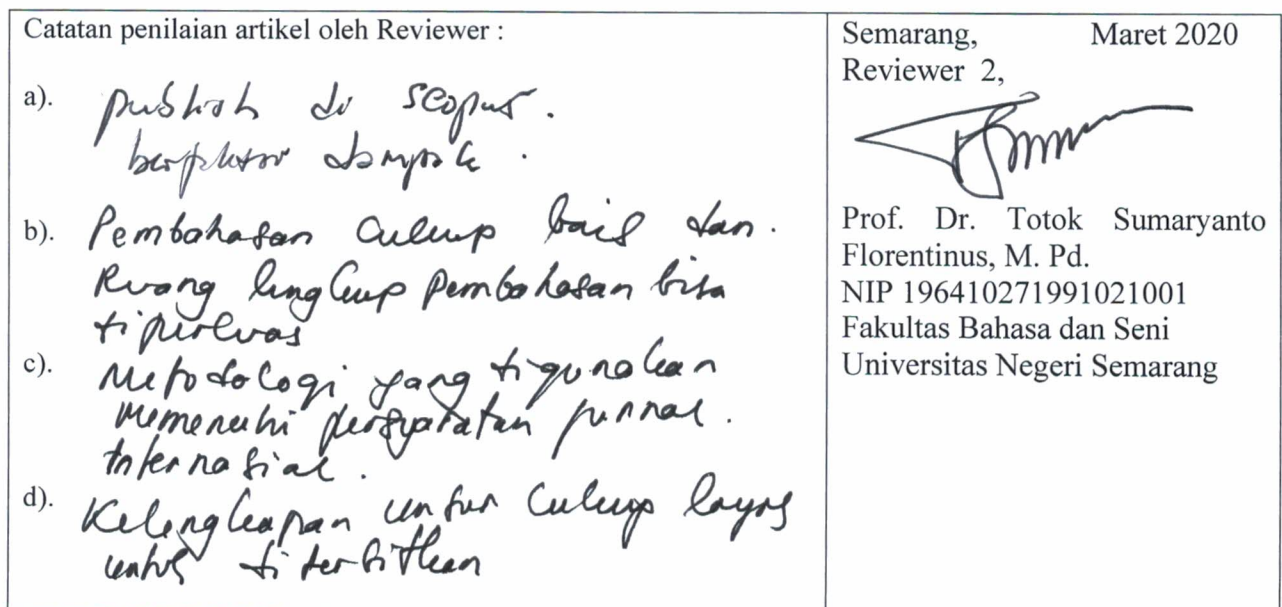 Catatan penilaian artikel oleh Reviewer :
a). publish di scopus.
berfaktor dampak.
b). Pembahasan cukup baik dan.
Ruang lingkup pembahasan bisa
diperluas
c). Metodologi yang digunakan
memenuhi persyaratan jurnal.
Internasial.
d). Kelengkapan unsur cukup layak
untuk diterbitkan
Semarang, Maret 2020
Reviewer 2,
Prof. Dr. Totok Sumaryanto
Florentinus, M. Pd.
NIP 196410271991021001
Fakultas Bahasa dan Seni
Universitas Negeri Semarang